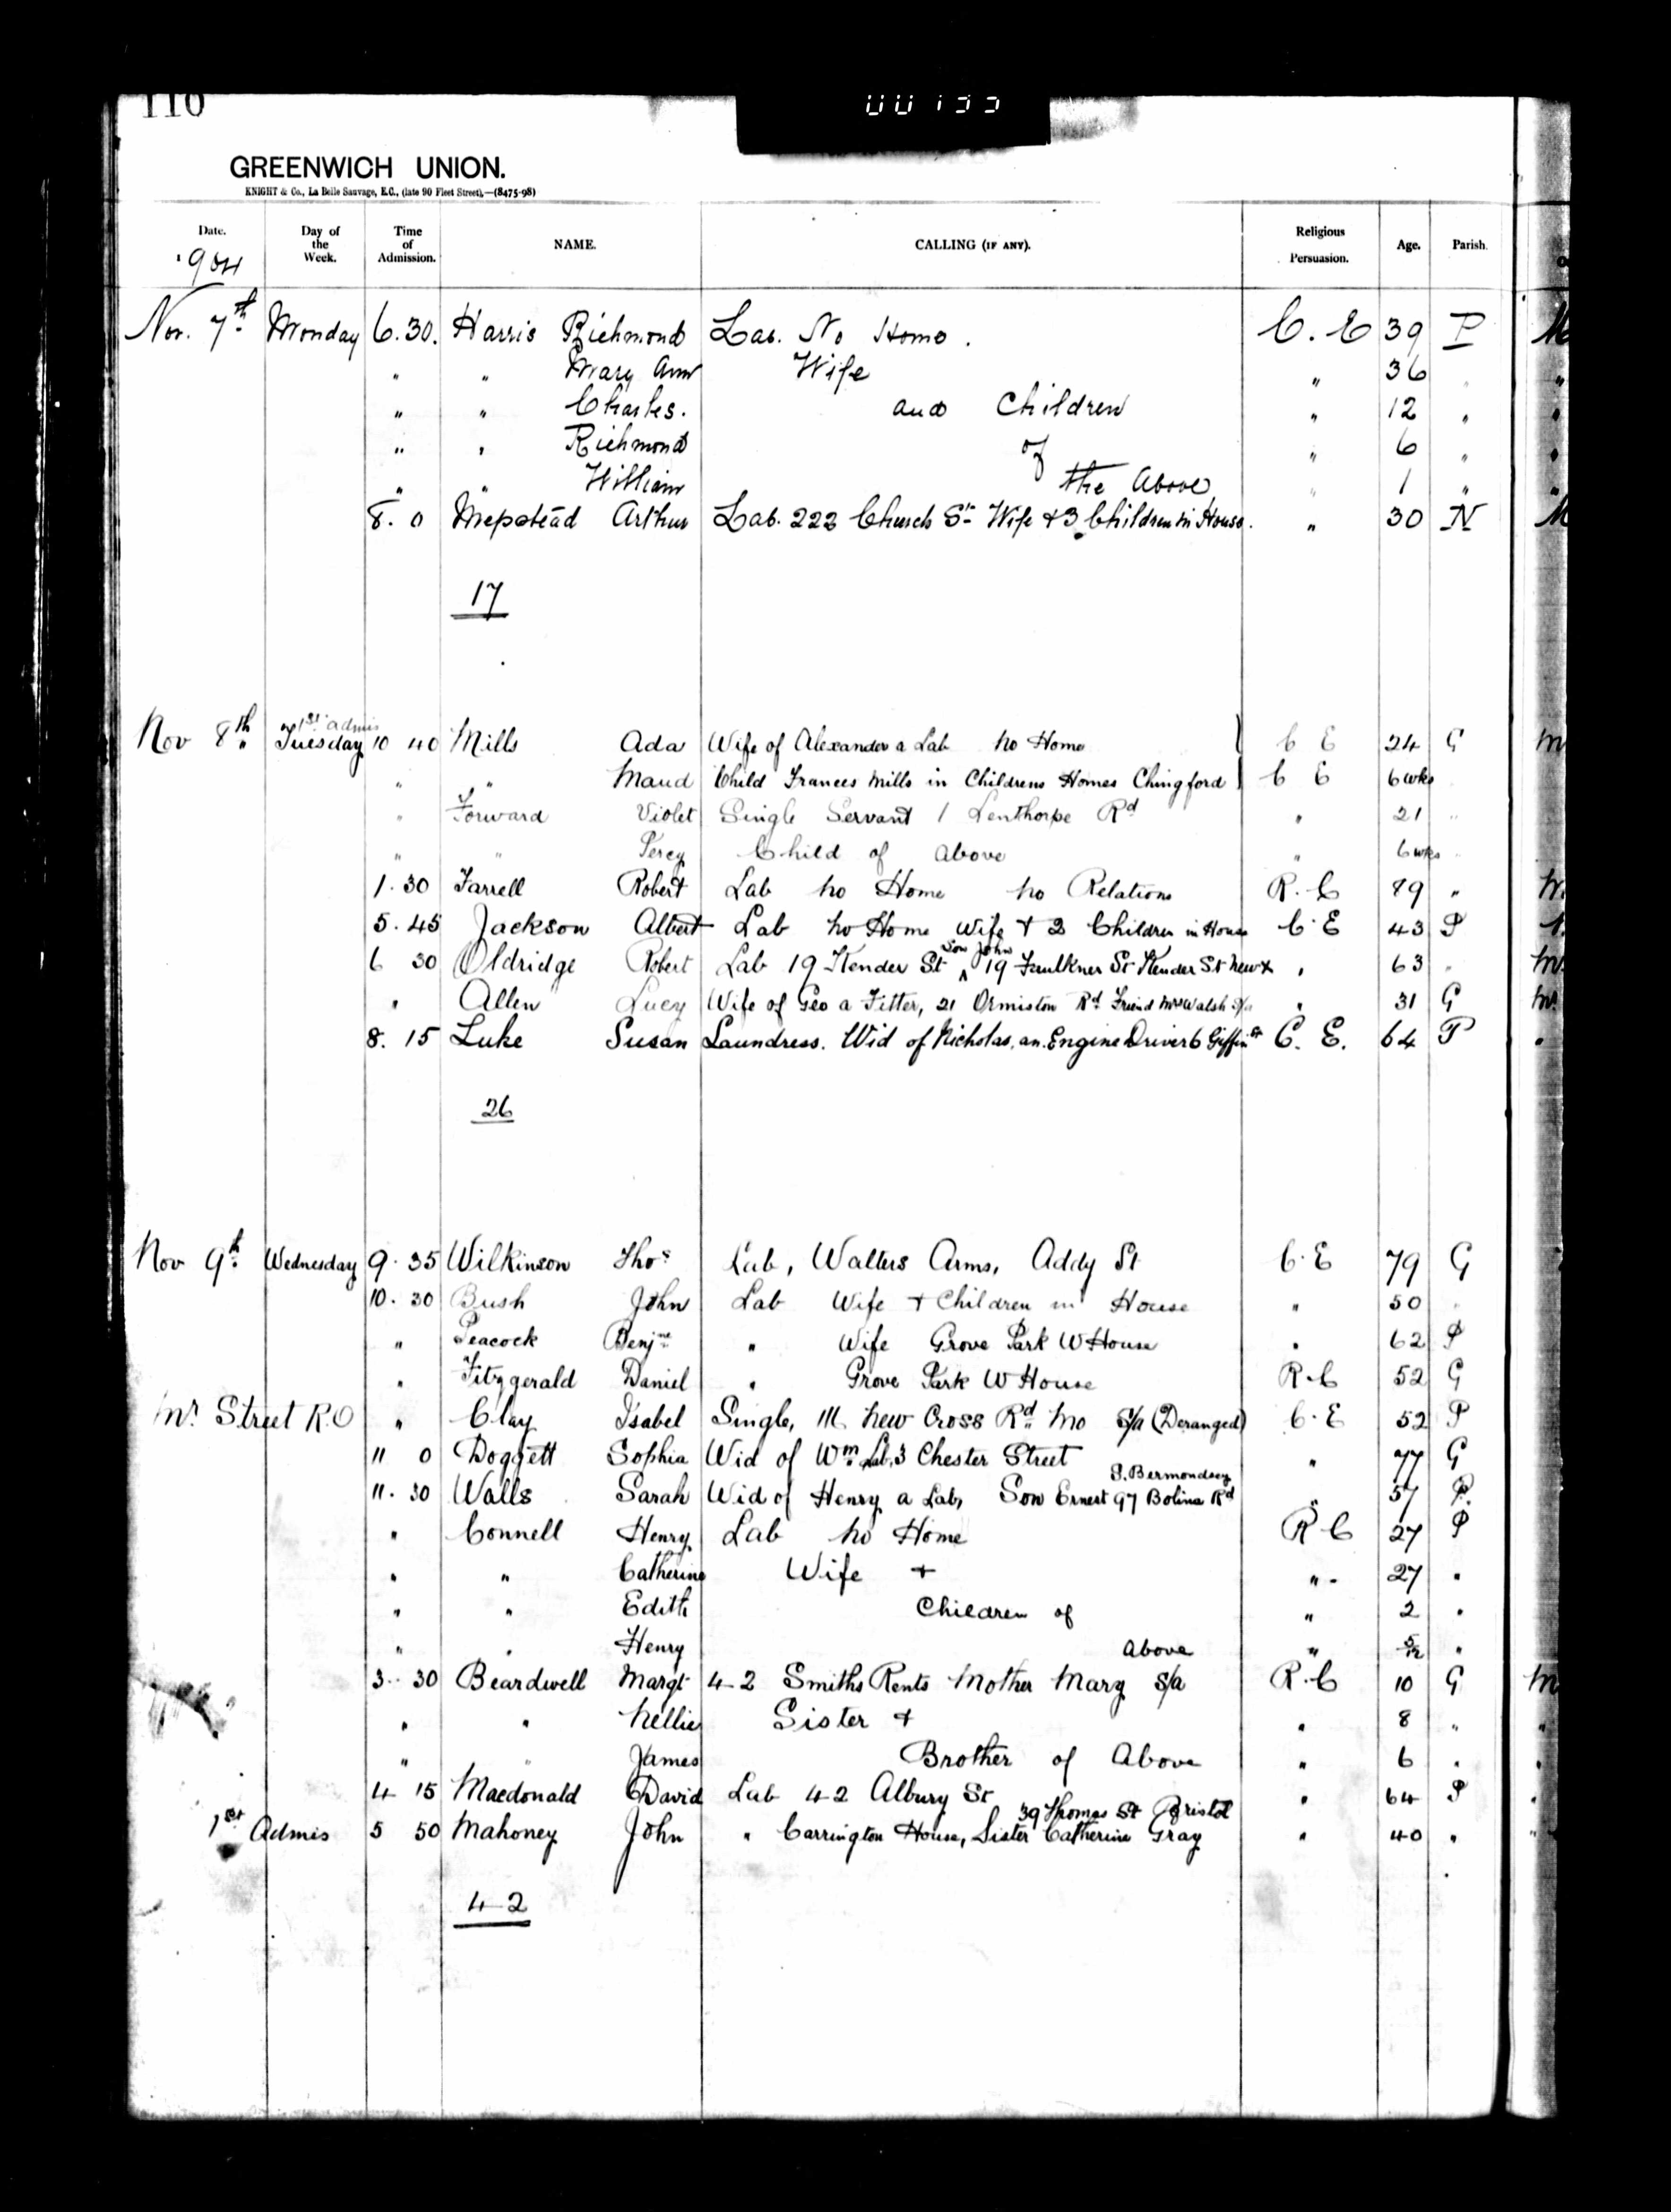 110
00135
GREENWICH UNION.
KNIGHT & Co., La Belle Sauvage, E.C., (late 90 Fleet Street).—(8475-98)
Date. Day of the Week. Time of Admission. NAME. CALLING (IF ANY). Religious Persuasion. Age. Parish.
1904
Nov. 7th Monday 6.30. Harris Richmond Lab. No Home. C. E 39 P
" " Mary Ann Wife " 36 "
" " Charles. and Children " 12 "
" " Richmond of " 6 "
" " William the Above " 1 "
8. 0 Mepstead Arthur Lab. 223 Church St Wife + 3 Children in House. " 30 N
17
1st Admis
Nov 8th Tuesday 10 40 Mills Ada Wife of Alexander a Lab no Home C E 24 G
" " Maud Child Frances Mills in Childrens Homes Chingford C E 6 wks
" Forward Violet Single Servant 1 Lenthorpe Rd " 21 "
" " Percy Child of Above " 6 wks "
1.30 Farrell Robert Lab no Home no Relations R.C 79 "
5.45 Jackson Albert Lab no Home Wife + 2 Children in House C E 43 P
Son John
6 30 Oldridge Robert Lab 19 Kender St 19 Faulkner St Kender St New X " 63 "
" Allen Lucy Wife of Geo a Fitter, 21 Ormiston Rd Friend Mrs Walsh S/a " 31 G
8. 15 Luke Susan Laundress. Wid of Nicholas, an Engine Driver 6 Giffin St C. E. 64 P
26
Nov 9th Wednesday 9.35 Wilkinson Thos Lab, Walters Arms, Addy St C.E 79 G
10.30 Bush John Lab Wife + Children in House " 50 "
" Peacock Benjne " Wife Grove Park W House " 62 P
" Fitzgerald Daniel " Grove Park W House R.C 52 G
Mr Street R.O " Clay Isabel Single, 111 New Cross Rd Mo S/a (Deranged) C.E 52 P
11 0 Doggett Sophia Wid of Wm Lab, 3 Chester Street " 77 G
S. Bermondsey
11.30 Walls Sarah Wid of Henry a Lab, Son Ernest 97 Bolina Rd " 57 P.
" Connell Henry Lab no Home R C 27 P
" " Catherine Wife + " 27 "
" " Edith Children of " 2 "
" " Henry Above " 5/12 "
3.30 Beardwell Margt 42 Smiths Rents Mother Mary S/a R.C 10 G
" " Nellie Sister + " 8 "
" " James Brother of Above " 6 "
4 15 Macdonald David Lab 42 Albury St " 64 P
39 Thomas St Bristol
1st Admis 5 50 Mahoney John " Carrington House, Sister Catherine Gray " 40 "
42